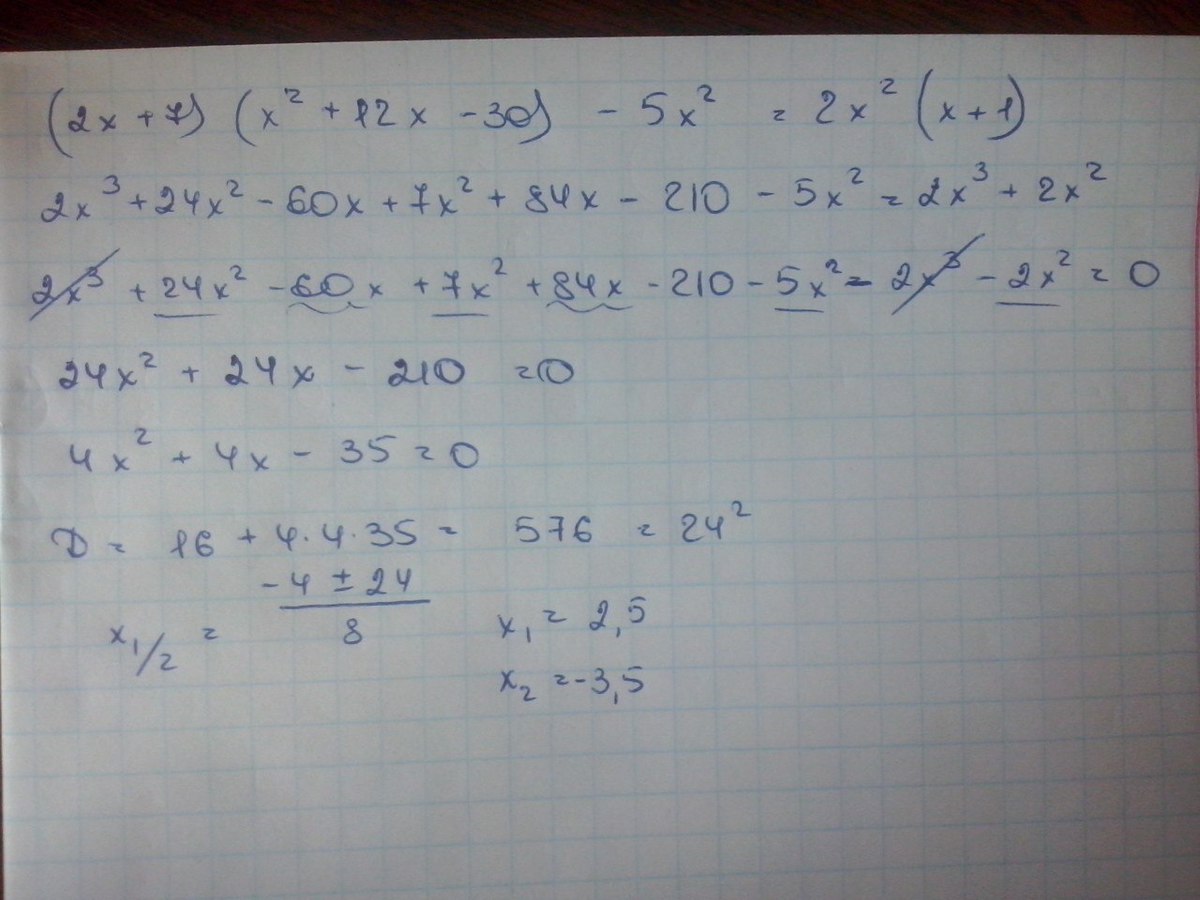 (2x + 7) (x² + 12x - 30) - 5x² = 2x² (x + 1)
2x³ + 24x² - 60x + 7x² + 84x - 210 - 5x² = 2x³ + 2x²
2x³ + 24x² - 60x + 7x² + 84x - 210 - 5x² - 2x³ - 2x² = 0
24x² + 24x - 210 = 0
4x² + 4x - 35 = 0
D = 16 + 4·4·35 = 576 = 24²
x₁/₂ = (-4 ± 24)/8 x₁ = 2,5
x₂ = -3,5